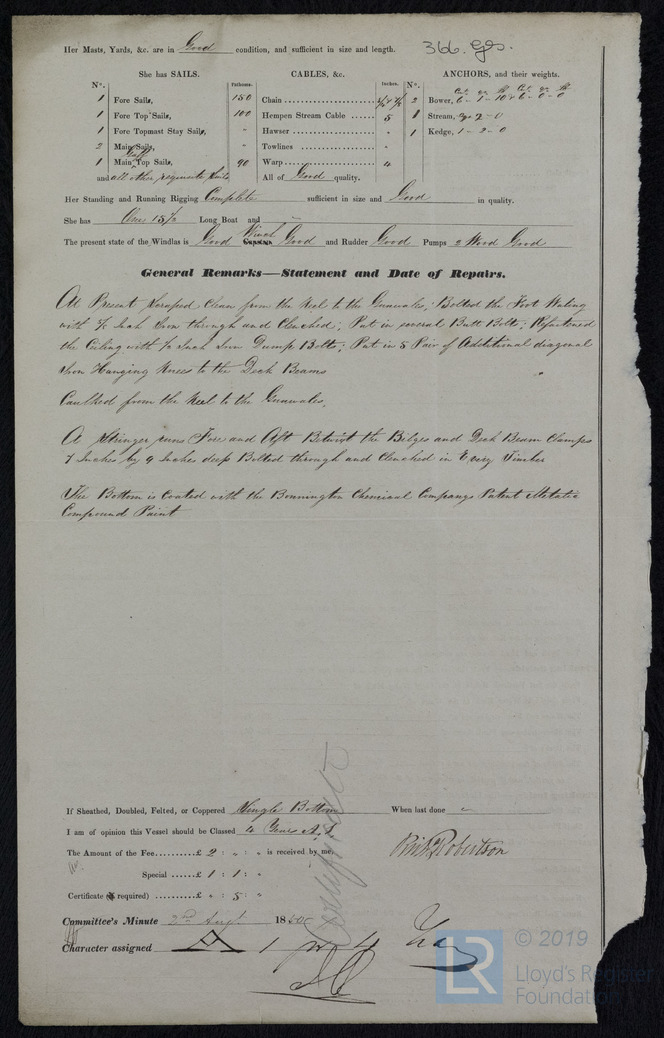 Her Masts, Yards, &c. are in Good condition, and sufficient in size and length. 366. Gds.
She has SAILS. CABLES, &c. ANCHORS, and their weights.
N°. Fathoms. Inches. N°. Cwt qrs lb Cwt qrs lb
1 Fore Sails, 150 Chain 2 Bower, 6 - 1 - 10 & 6 - 0 - 0
1 Fore Top Sails, 100 Hempen Stream Cable 5 1 Stream, 2 - 0
1 Fore Topmast Stay Sails, " Hawser " 1 Kedge, 1 - 2 - 0
2 Main Sails, " Towlines "
1 Main Gaff Top Sails, 90 Warp 4
and all other requisite Sails All of Good quality.
Her Standing and Running Rigging Complete sufficient in size and Good in quality.
She has One 15½ Long Boat and —
The present state of the Windlas is Good Capstan Winch Good and Rudder Good Pumps 2 Wood Good
General Remarks—Statement and Date of Repairs.
At Present Scraped Clean from the Keel to the Gunwales; Bolted the Foot Waling
with Inch Iron through and Clenched; Put in several Butt Bolts; Refastened
the Ceiling with ½ Inch Iron Dump Bolts; Put in 5 Pair of Additional diagonal
Iron Hanging Knees to the Deck Beams
Caulked from the Keel to the Gunwales,
A Stringer runs Fore and Aft Betwixt the Bilges and Deck Beam Clamps
7 Inches by 9 Inches deep Bolted through and Clenched in Every Timber
The Bottom is Coated with the Bonnington Chemical Companys Patent Metalic
Compound Paint
If Sheathed, Doubled, Felted, or Coppered Single Bottom When last done "
I am of opinion this Vessel should be Classed 4 Years A.1
The Amount of the Fee £ 2 : " : " is received by me, Robertson
Special £ 1 : 1 : "
Certificate (if required) £ " : 5 : "
Committee's Minute 2nd Augt 18
Character assigned A 1 for 4
© 2019
LR Lloyd's Register
Foundation